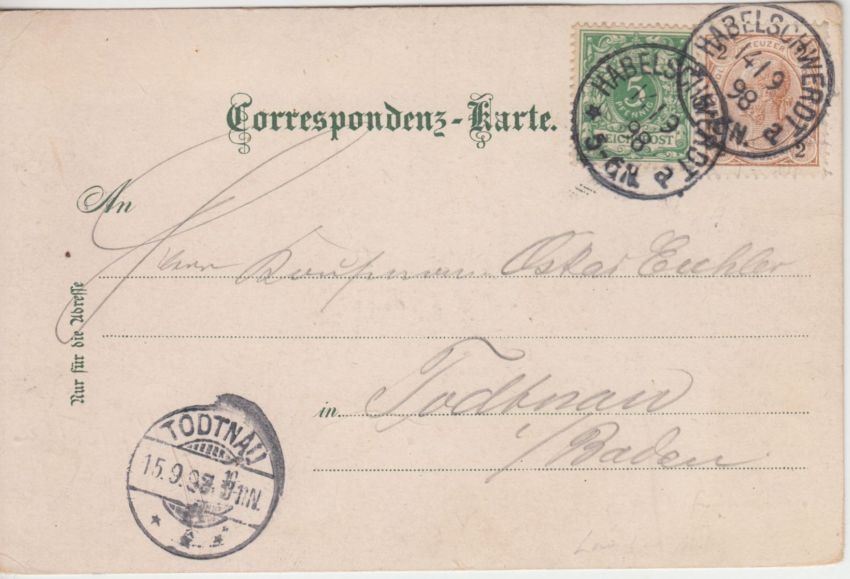 Correspondenz-Karte.
HABELSCHWERDT
5
PFENNIG
REICHSPOST
9
98
5-6N.
HABELSCHWERDT
KREUZER
9
98
N.
2
An
Herrn Kaufmann Oskar Eichler
Nur für die Adresse
in Todtnau
i/Baden
TODTNAU
15.9.98. 11N.